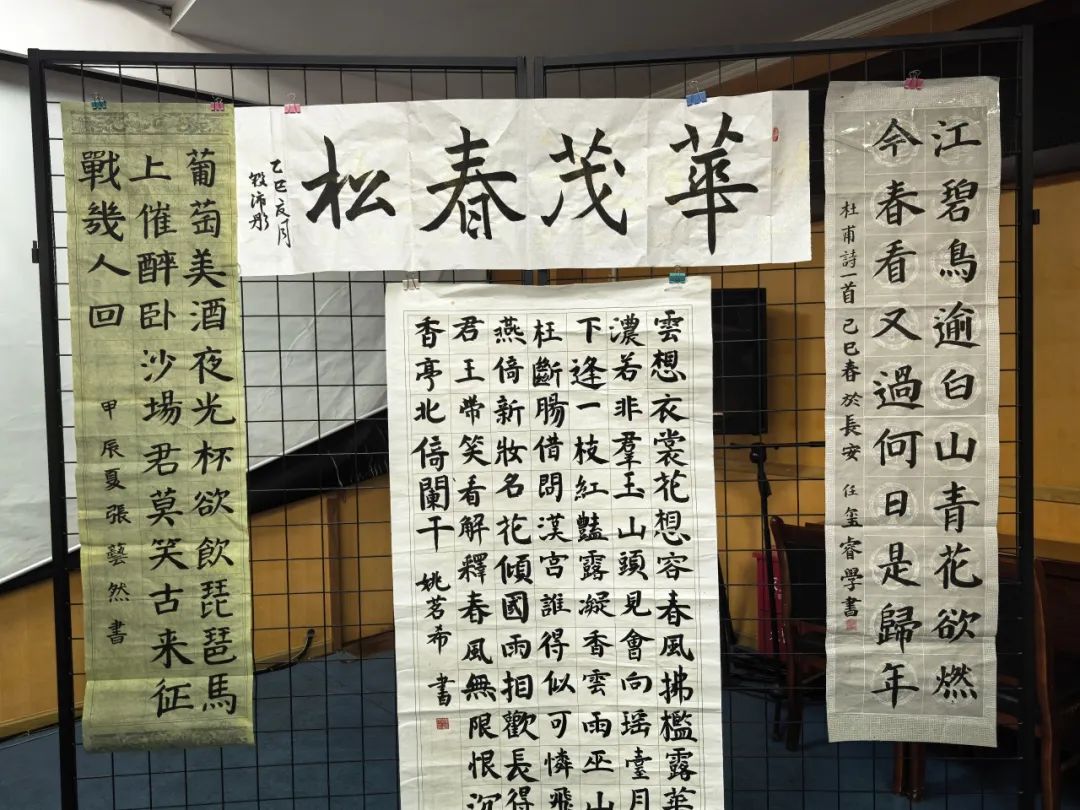 江碧鳥逾白山青花欲燃
今春看又過何日是歸年
杜甫詩一首 己巳春於長安 任玺睿學書
華茂春松
乙巳夏月
沛彤
雲想衣裳花想容春風拂檻露華
濃若非羣玉山頭見會向瑶臺月
下逢一枝紅豔露凝香雲雨巫山
枉斷腸借問漢宮誰得似可憐飛
燕倚新妝名花傾國兩相歡長得
君王帶笑看解釋春風無限恨沉
香亭北倚闌干 姚茗希 書
葡萄美酒夜光杯欲飲琵琶馬
上催醉卧沙場君莫笑古来征
戰幾人回
甲辰夏張藝然書